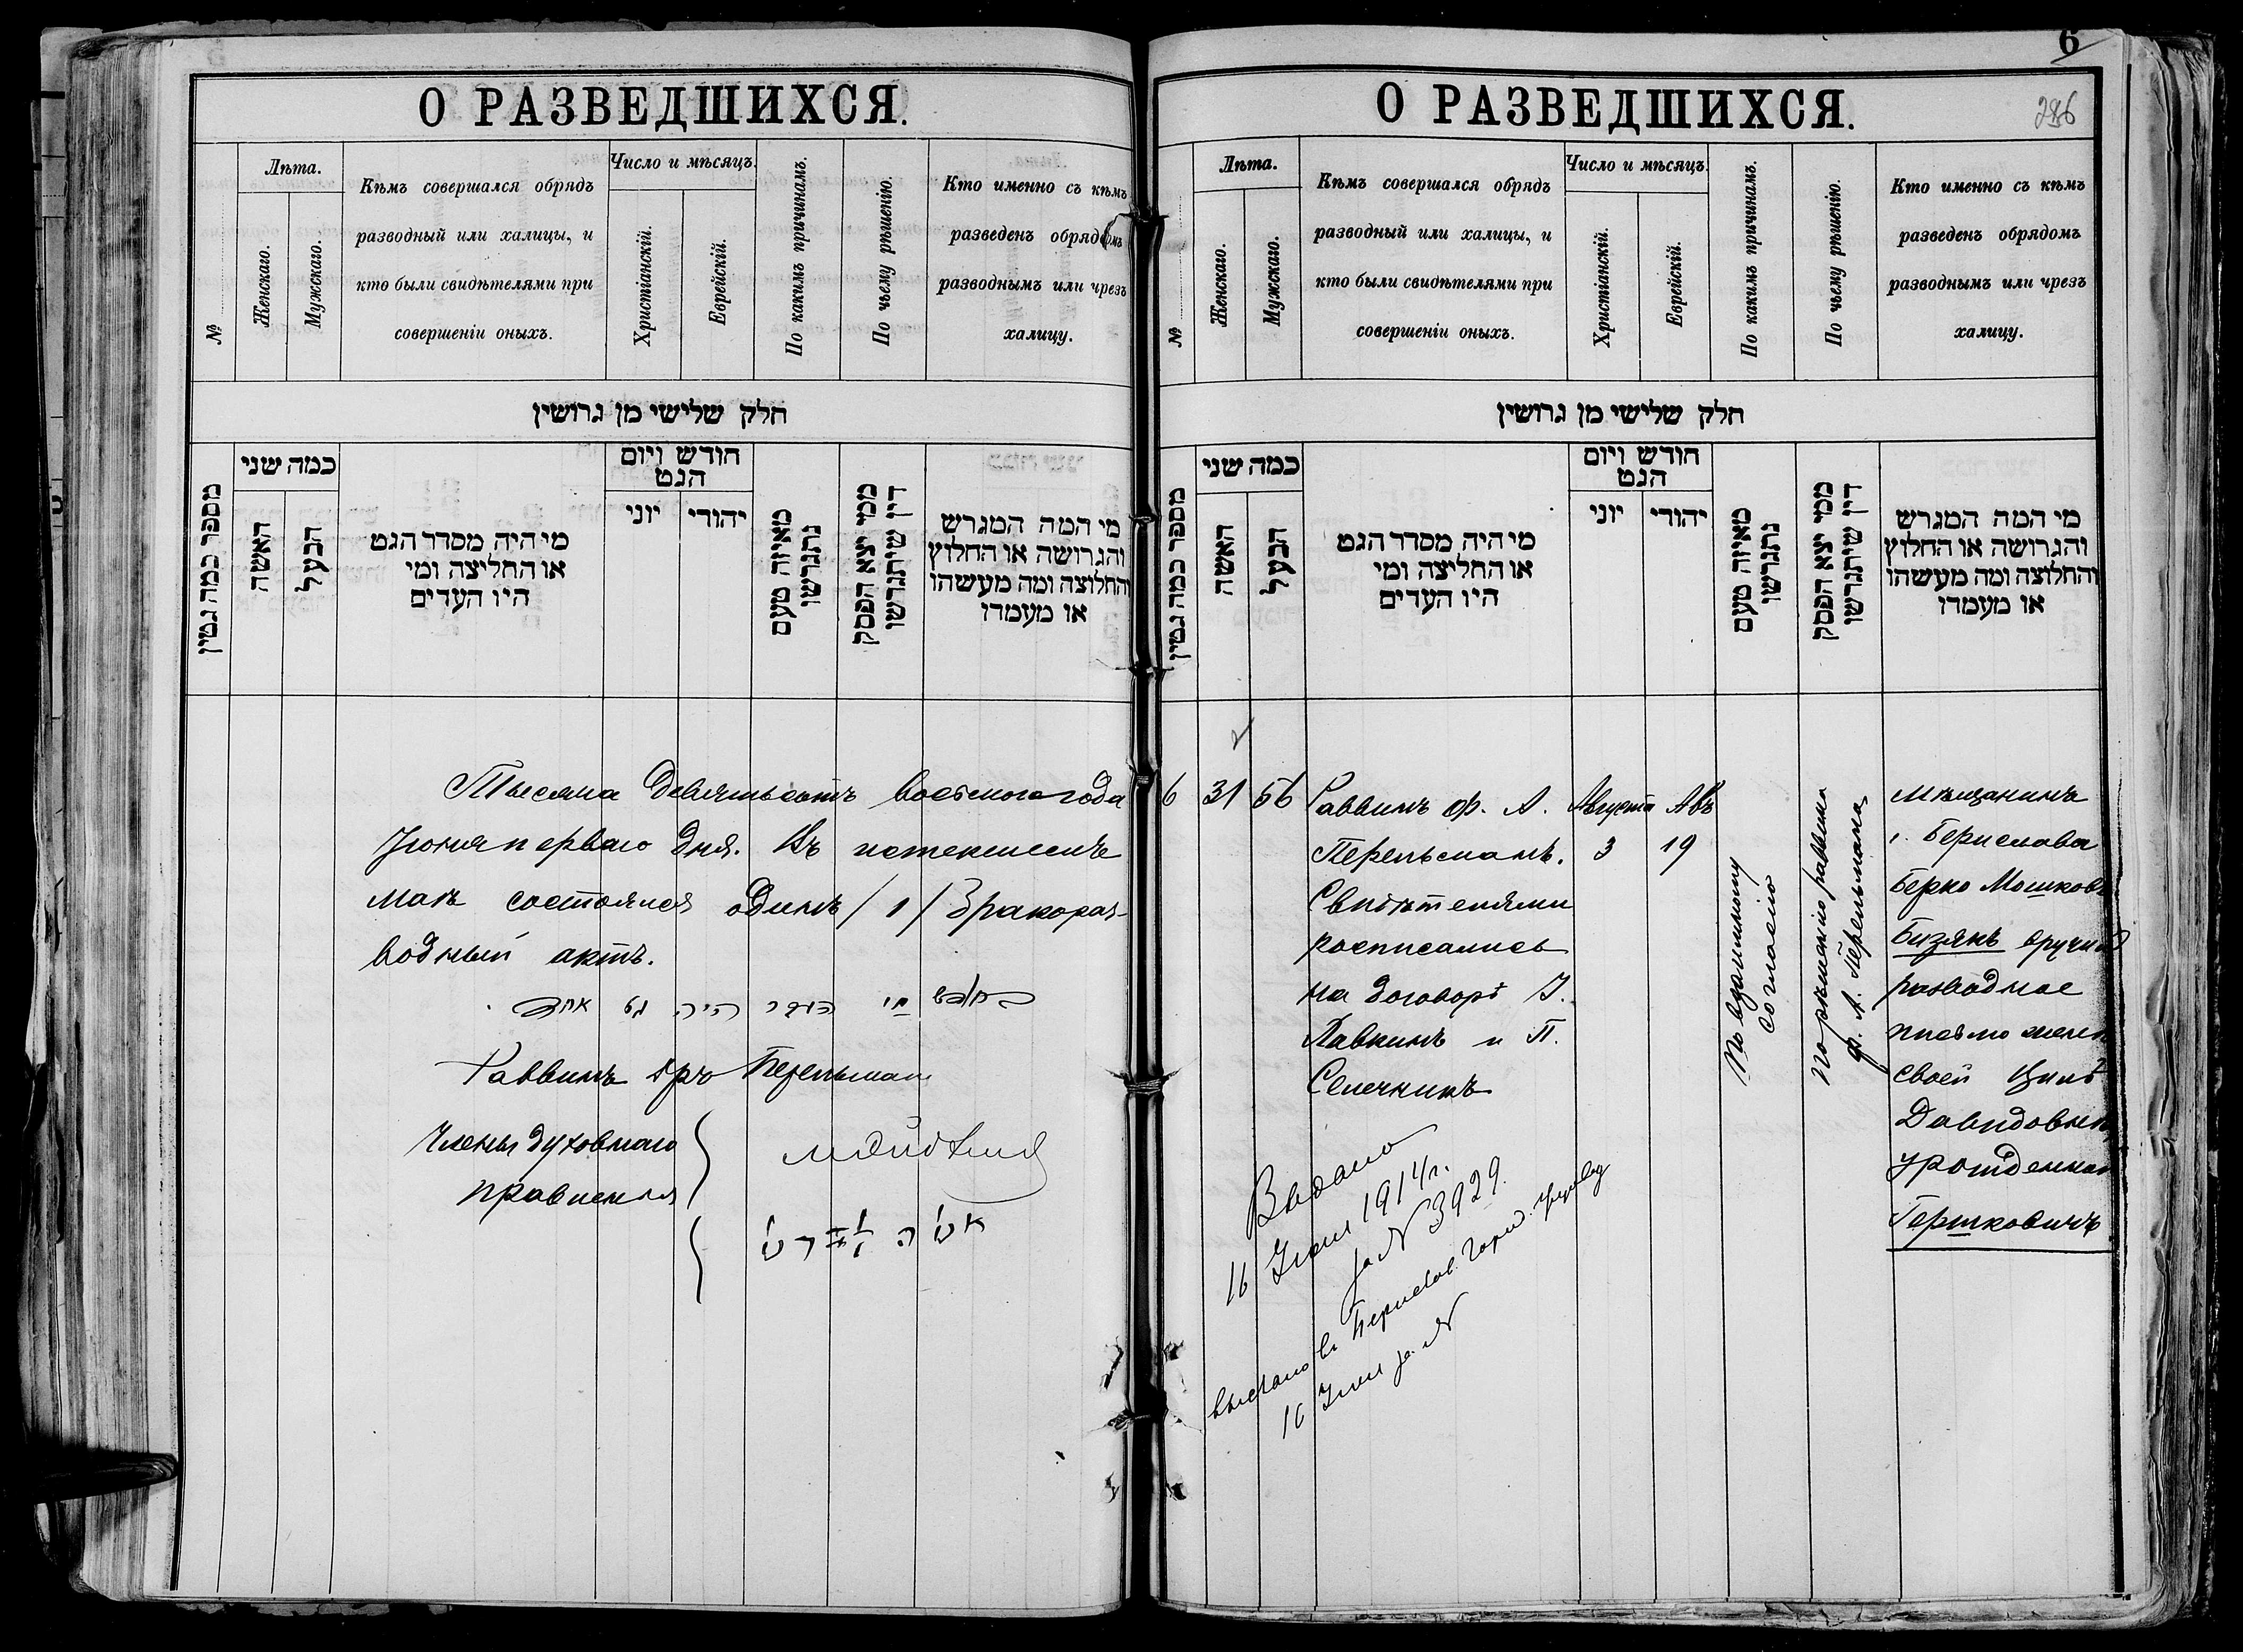 О РАЗВЕДШИХСЯ.
№
Лѣта.
Женскаго.
Мужскаго.
Кѣмъ совершался обрядъ
разводный или халицы, и
кто были свидѣтелями при
совершеніи оныхъ.
Число и мѣсяцъ.
Христіанскій.
Еврейскій.
По какимъ причинамъ.
По чьему рѣшенію.
Кто именно съ кѣмъ
разведенъ обрядомъ
разводнымъ или чрезъ
халицу.
חלק שלישי מן גרושין
מספר כמה גטין
כמה שני
האשה
הבעל
מי היה מסדר הגט
או החליצה ומי
היו העדים
חודש ויום
הגט
יוני
יהודי
מאיזה טעם
נתגרשו
ממי יצא הפסק
דין שיתגרשו
מי המה המגרש
והגרושה או החלוץ
והחלוצה ומה מעשהו
או מעמדו
Тысяча девятьсотъ восьмого года
Іюня перваго дня. Въ истекшемъ
маѣ состоялся одинъ /1/ бракораз-
водный актъ.
היה גט אחד
Раввинъ Перельман
Члены духовнаго
правленія
6
О РАЗВЕДШИХСЯ.
286
№
Лѣта.
Женскаго.
Мужскаго.
Кѣмъ совершался обрядъ
разводный или халицы, и
кто были свидѣтелями при
совершеніи оныхъ.
Число и мѣсяцъ.
Христіанскій.
Еврейскій.
По какимъ причинамъ.
По чьему рѣшенію.
Кто именно съ кѣмъ
разведенъ обрядомъ
разводнымъ или чрезъ
халицу.
חלק שלישי מן גרושין
מספר כמה גטין
כמה שני
האשה
הבעל
מי היה מסדר הגט
או החליצה ומי
היו העדים
חודש ויום
הגט
יוני
יהודי
מאיזה טעם
נתגרשו
ממי יצא הפסק
דין שיתגרשו
מי המה המגרש
והגרושה או החלוץ
והחלוצה ומה מעשהו
או מעמדו
6
31
56
Раввинъ ф. А.
Перельманъ.
Свидѣтелями
росписались
на договорѣ І.
Лавкинъ и П.
Семечкинъ
Августа
3
Авъ
19
По взаимному
согласію
По рѣшенію раввина
ф. А. Перельмана
мѣщанинъ
г. Берислава
Берко Мошков
Бизянъ вручил
разводное
письмо женѣ
своей Цилѣ
Давидовнѣ
урожденной
Гершковичъ
Выдано
16 Іюля 1914 г.
за № 3929.
выслано въ Берислав. Город.
16 Іюля за №